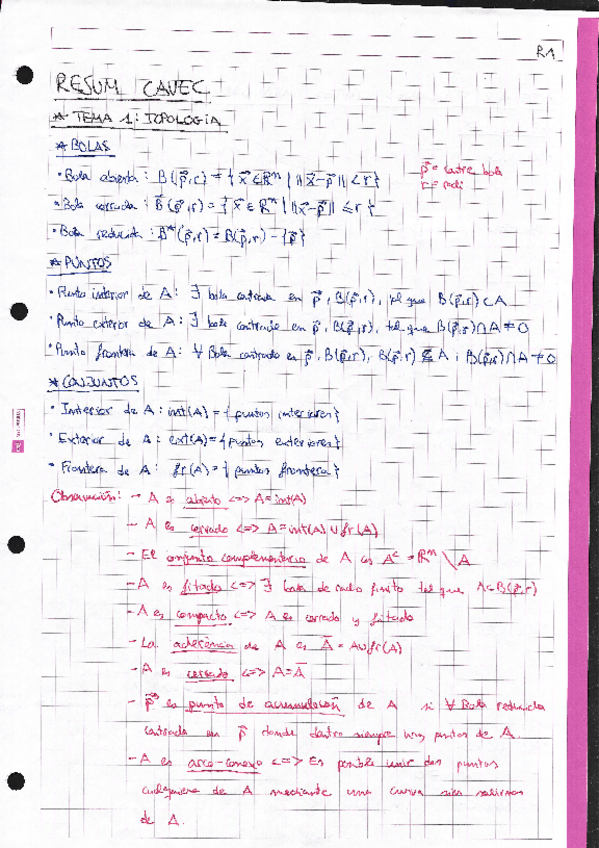 R1
RESUM CAVEC
* TEMA 1: TOPOLOGÍA
* BOLAS
· Bola abierta: B(p⃗,r) = {x⃗ ∈ ℝⁿ | ||x⃗-p⃗|| < r}
p⃗ = centre bola
r = radi
· Bola cerrada: B̄(p⃗,r) = {x⃗ ∈ ℝⁿ | ||x⃗-p⃗|| ≤ r}
· Bola reducida: B*(p⃗,r) = B(p⃗,r) - {p⃗}
* PUNTOS
· Punto interior de A: ∃ bola centrada en p⃗, B(p⃗,r), tal que B(p⃗,r) ⊂ A
· Punto exterior de A: ∃ bola centrada en p⃗, B(p⃗,r), tal que B(p⃗,r) ∩ A ≠ 0
· Punto frontera de A: ∀ Bola centrada en p⃗, B(p⃗,r), B(p⃗,r) ⊄ A i B(p⃗,r) ∩ A ≠ 0
* CONJUNTOS
· Interior de A: int(A) = {puntos interiores}
· Exterior de A: ext(A) = {puntos exteriores}
· Frontera de A: fr(A) = {puntos frontera}
Observación: - A es abierto <=> A = int(A)
- A es cerrado <=> A = int(A) ∪ fr(A)
- El conjunto complementario de A es Aᶜ = ℝⁿ \ A
- A es fitado <=> ∃ bola de radio finito tal que A ⊂ B(p⃗,r)
- A es compacto <=> A es cerrado y fitado
- La adherencia de A es Ā = A ∪ fr(A)
- A es cerrado <=> A = Ā
- p⃗ es punto de acumulación de A si ∀ Bola reducida
centrada en p⃗ donde dentro siempre hay puntos de A.
- A es arco-conexo <=> Es posible unir dos puntos
cualesquiera de A mediante una curva sin salirnos
de A.